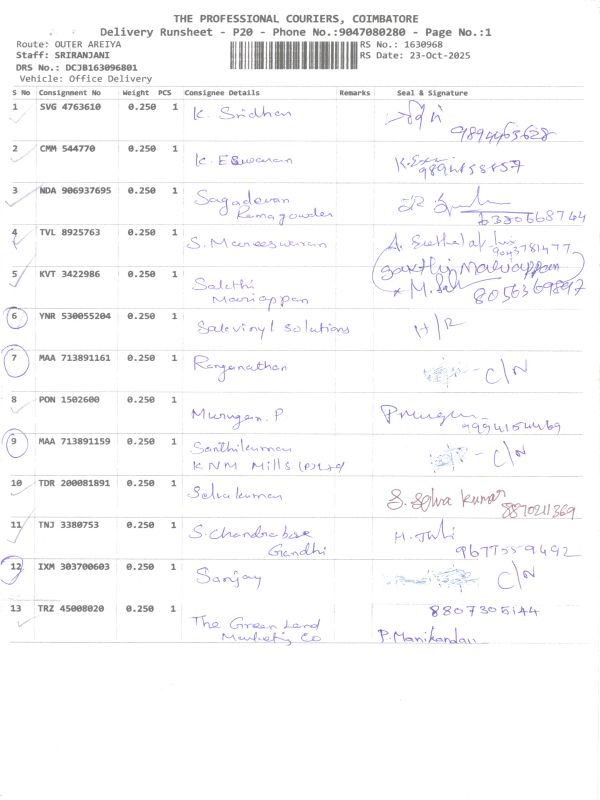 THE PROFESSIONAL COURIERS, COIMBATORE
Delivery Runsheet - P20 - Phone No.:9047080280 - Page No.:1
Route: OUTER AREIYA
RS No.: 1630968
Staff: SRIRANJANI
RS Date: 23-Oct-2025
DRS No.: DCJB163096801
Vehicle: Office Delivery
S No Consignment No Weight PCS Consignee Details Remarks Seal & Signature
1 SVG 4763610 0.250 1 K. Sridhan
9894463628
2 CMM 544770 0.250 1 K. Eswaran
3 NDA 906937695 0.250 1 Sagadevan
Ramagounder
6380668744
4 TVL 8925763 0.250 1 S. Mareeswaran
9043781477
5 KVT 3422986 0.250 1 Sakthi
Mariappan
Sakthi Mariappan
8056369897
6 YNR 530055204 0.250 1 Salevinyl Solutions H/R
7 MAA 713891161 0.250 1 Ranganathan C/N
8 PON 1502600 0.250 1 Murugan. P
9994154469
9 MAA 713891159 0.250 1 Santhilkumar C/N
KNM Mills (P) Ltd
10 TDR 200081891 0.250 1 Selvakumar S. Selva kumar
8870211369
11 TNJ 3380753 0.250 1 S. Chandrabose
Gandhi
9677559492
12 IXM 303700603 0.250 1 Sanjay C/N
13 TRZ 45008020 0.250 1 8807305144
The Green Land
Marketing Co P. Manikandan